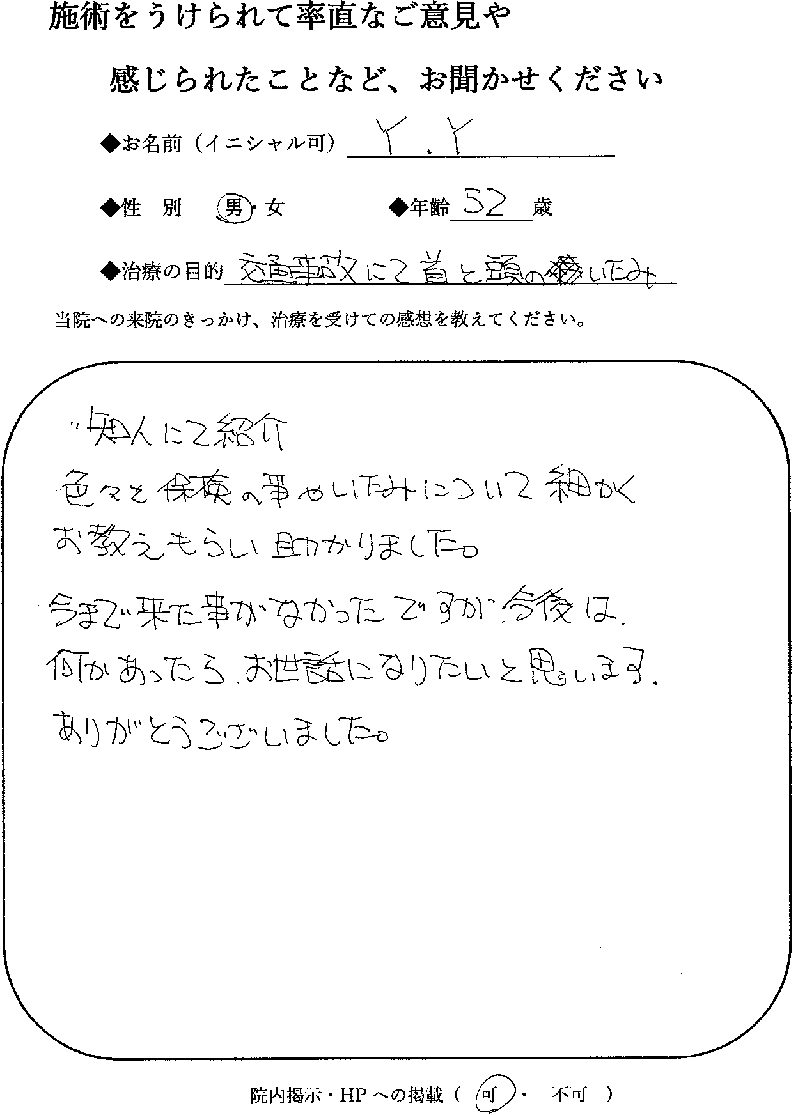 施術をうけられて率直なご意見や
感じられたことなど、お聞かせください
◆お名前（イニシャル可） Y.Y
◆性 別 男・女 ◆年齢 52 歳
◆治療の目的 交通事故にて首と頭のいたみ
当院への来院のきっかけ、治療を受けての感想を教えてください。
知人にて紹介
色々と保険の事やいたみについて細かく
お教えもらい助かりました。
今まで来た事がなかったですが今後は、
何かあったら、お世話になりたいと思います。
ありがとうございました。
院内掲示・HPへの掲載（ 可 ・ 不可 ）